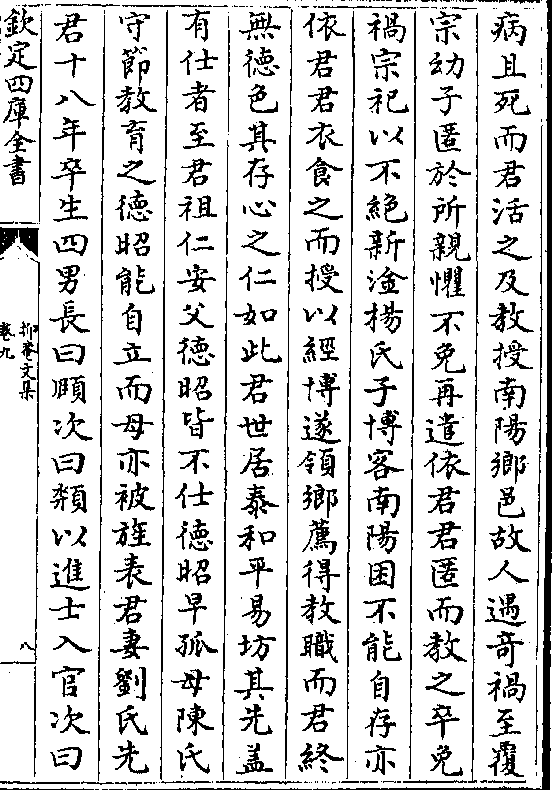 病且死而君活之及教授南陽鄉邑故人遇奇禍至覆
宗幼子匿於所親懼不免再遣依君君匿而教之卒免
禍宗祀以不絶新淦楊氏子博客南陽困不能自存亦
依君君衣食之而授以經博遂領鄉薦得教職而君終
無德色其存心之仁如此君世居泰和平易坊其先盖
有仕者至君祖仁安父德昭皆不仕德昭早孤母陳氏
守節教育之德昭能自立而母亦被旌表君妻劉氏先
君十八年卒生四男長曰頤次曰纇以進士入官次曰
欽定四庫全書
抑菴文集
卷九
八